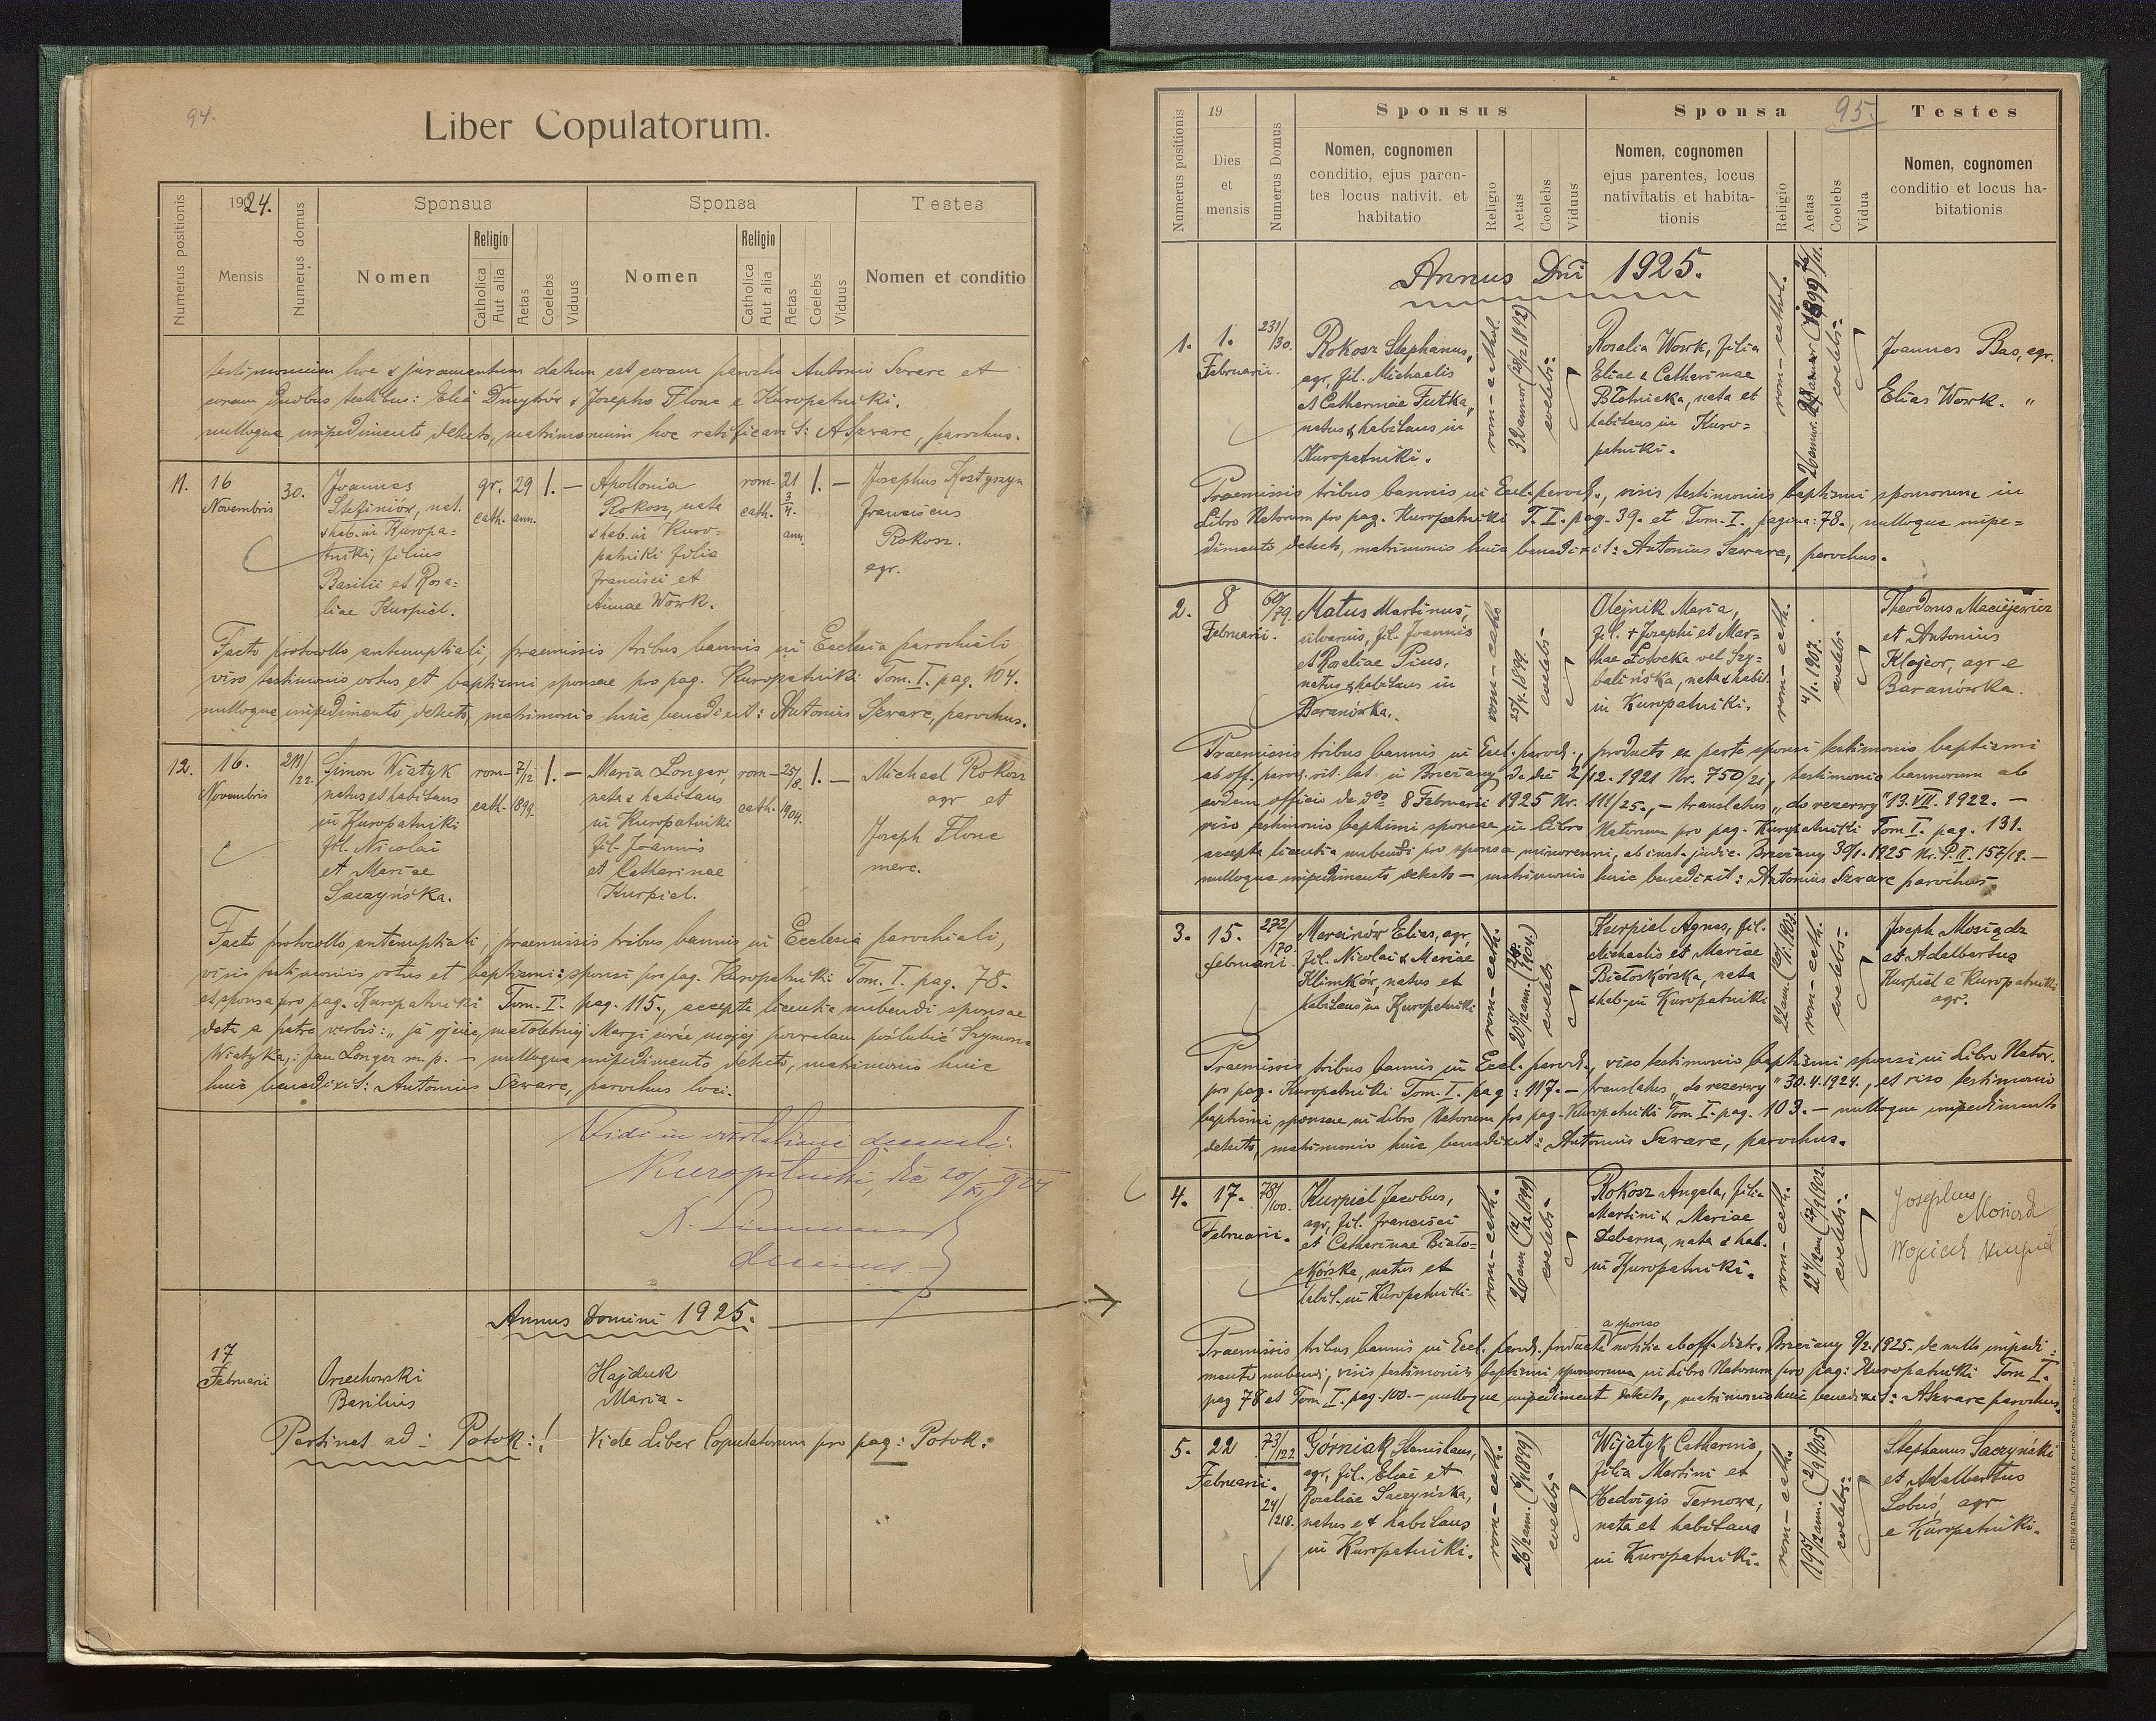 94.
Liber Copulatorum.
Numerus positionis
1924.
Mensis
Numerus domus
Sponsus
Nomen
Religio
Catholica
Aut alia
Aetas
Coelebs
Viduus
Sponsa
Nomen
Religio
Catholica
Aut alia
Aetas
Coelebs
Viduus
Testes
Nomen et conditio
testimonium hoc & juramentum datum est coram parocho Antonio Szwarc et
coram duobus testibus: Eliá Dmytrów & Josepho Flonc e Kuropatniki.
nulloque impedimento detecto, matrimonium hoc ratificavit: ASzwarc, parochus.
11.
16
Novembris
30.
Joannes
Stefiniów, nat.
& hab. in Kuropa-
tniki, filius
Basilii et Rosa-
liae Kurpiel.
gr.
cath.
29
ann.
1.
—
Apollonia
Rokosz, nata
& hab. in Kuro-
patniki filia
Francisci et
Annae Work.
rom-
cath.
21
3
4.
ann.
1.
—
Josephus Kostyszyn
Franciscus
Rokosz.
agr.
Facto protocollo antenuptiali, praemissis tribus bannis in Ecclesia parochiali,
viso testimonio ortus et baptismi sponsae pro pag. Kuropatniki Tom. I. pag. 104.
nulloque impedimento detecto, matrimonio huic benedixit: Antonius Szwarc, parochus.
12.
16.
Novembris
211/22.
Simon Wiatyk
natus et habitans
in Kuropatniki
fil. Nicolai
et Mariae
Saczyńska.
rom-
cath.
7/12
1899.
1.
—
Maria Longer,
nata & habitans
in Kuropatniki
fil. Joannis
et Catharinae
Kurpiel.
rom-
cath.
25/8.
1904.
1.
—
Michael Rokosz
agr et
Joseph Flonc
merc.
Facto protocollo antenuptiali, praemissis tribus bannis in Ecclesia parochiali,
visis testimoniis ortus et baptismi: sponsi pro pag. Kuropatniki Tom. I. pag. 78.
et sponsa pro pag. Kuropatniki Tom. I. pag. 115., accepta licentia nubendi sponsae
data a patre verbis: „ja ojciec małoletniej Maryi córce mojej pozwalam poślubić Szymona
Wiatyka,: Jan Longer m. p. — nulloque impedimento detecto, matrimonio huic
huic benedixit: Antonius Szwarc, parochus loci.
Vidi in visitatione decanali.
Kuropatniki, die 20/XI 924
decanus
Annus Domini 1925.
17
Februarii
Orzechowski
Basilius
Hajduk
Maria.
Pertinet ad: Potok:! Vide Liber Copulatorum pro pag: Potok.
95.
Numerus positionis
19
Dies
et
mensis
Numerus Domus
Sponsus
Nomen, cognomen
conditio, ejus paren-
tes locus nativit. et
habitatio
Religio
Aetas
Coelebs
Viduus
Sponsa
Nomen, cognomen
ejus parentes, locus
nativitatis et habita-
tionis
Religio
Aetas
Coelebs
Vidua
Testes
Nomen, cognomen
conditio et locus ha-
bitationis
Annus Dni 1925.
1.
1.
Februarii.
231/30.
Rokosz Stephanus,
agr, fil. Michaelis
et Catharinae Futka,
natus & habitans in
Kuropatniki.
rom-cathol.
32 annor (28/12 1892)
coelebs.
Rosalia Work, filia
Eliae & Catharinae
Błotnicka, nata et
habitans in Kuro=
patniki.
rom-cathol.
coelebs.
Joannes Bas, agr.
Elias Work. "
Praemissis tribus bannis in Eccl. paroch., visis testimoniis baptismi sponsorum in
Libro Natorum pro pag. Kuropatniki T. I. pag. 39. et Tom. I. pagina: 78., nulloque impe=
dimento detecto, matrimonio huic benedixit: Antonius Szwarc, parochus.
2.
8
Februarii.
60/79.
Matus Martinus,
silvarius, fil. Joannis
et Rosaliae Pius,
natus & habitans in
Baranówka.
rom-cath.
25/1. 1899.
coelebs.
Olejnik Maria,
fil. + Josephi et Mar=
thae Łotocka vel Szy=
balińska, nata & habit.
in Kuropatniki.
rom-cath.
4/1. 1907.
coelebs
Theodorus Maciejewicz
et Antonius
Klejeor, agr e
Baranówka.
Praemissis tribus bannis in Eccl. paroch., producto ex parte sponsi testimonio baptismi
ab off. paroch. rit. lat. in Brzeżany de die 2/12. 1921 Nr. 750/21, testimonio bannorum ab
eodem officio de dto 8 Februarii 1925 Nr. 111/25., — translatus „do rezerwy" 13. VII. 1922. —
viso testimonio baptismi sponsae in Libro Natorum pro pag. Kuropatniki Tom I. pag. 131.
accepta licentia nubendi pro sponsa minorenni, ab inst. judic. Brzeżany 30/1. 1925 Nr. P. II. 157/19. —
nulloque impedimento detecto — matrimonio huic benedixit: Antonius Szwarc parochus.
3.
15.
Februarii
272/170
Marcinów Elias, agr,
fil. Nicolai & Mariae
Klimków, natus et
habitans in Kuropatniki
rom-cath.
coelebs
Kurpiel Agnes, fil.
Michaelis et Mariae
Białoskórska, nata
& hab. in Kuropatniki
rom-cath.
coelebs.
Joseph Mosiądz
et Adalbertus
Kurpiel e Kuropatniki
agr.
Praemissis tribus bannis in Eccl. paroch., viso testimonio baptismi sponsi in Libro Nator.
pro pag. Kuropatniki Tom. I. pag: 117. — translatus „do rezerwy" 30.4.1924., et viso testimonio
baptismi sponsae in Libro Natorum pro pag. Kuropatniki Tom I. pag. 103. — nulloque impedimento
detecto, matrimonio huic benedixit: Antonius Szwarc, parochus.
4.
17.
Februarii.
78/100.
Kurpiel Jacobus,
agr, fil. Francisci
et Catharinae Biało=
skórska, natus et
habit. in Kuropatniki.
rom-cath.
coelebs.
Rokosz Angela, filia
Martini & Mariae
Dobarna, nata & hab.
in Kuropatniki.
rom-cath.
coelebs.
Josephus
Mosiądz
Wojciech Kurpiel
a sponso
Praemissis tribus bannis in Eccl. paroch. producta notitia ab off. distr. Brzeżany 9/2. 1925. de nullo impedi=
mento nubendi, visis testimoniis baptismi sponsorum in Libro Natorum pro pag: Kuropatniki Tom I.
pag 78 et Tom I. pag. 100. — nulloque impediment detecto, matrimonio huic benedixit: ASzwarc parochus.
5.
22
Februarii.
73/122
24/218.
Górniak Stanislaus,
agr, fil. Eliae et
Rosaliae Saczyńska,
natus et habitans
in Kuropatniki.
rom-cath.
coelebs.
Wijatyk Catharina,
filia Martini et
Hedvigis Ternowa,
nata et habitans
in Kuropatniki.
rom-cath.
coelebs.
Stephanus Saczyński
et Adalbertus
Lobuś, agr
e Kuropatniki.